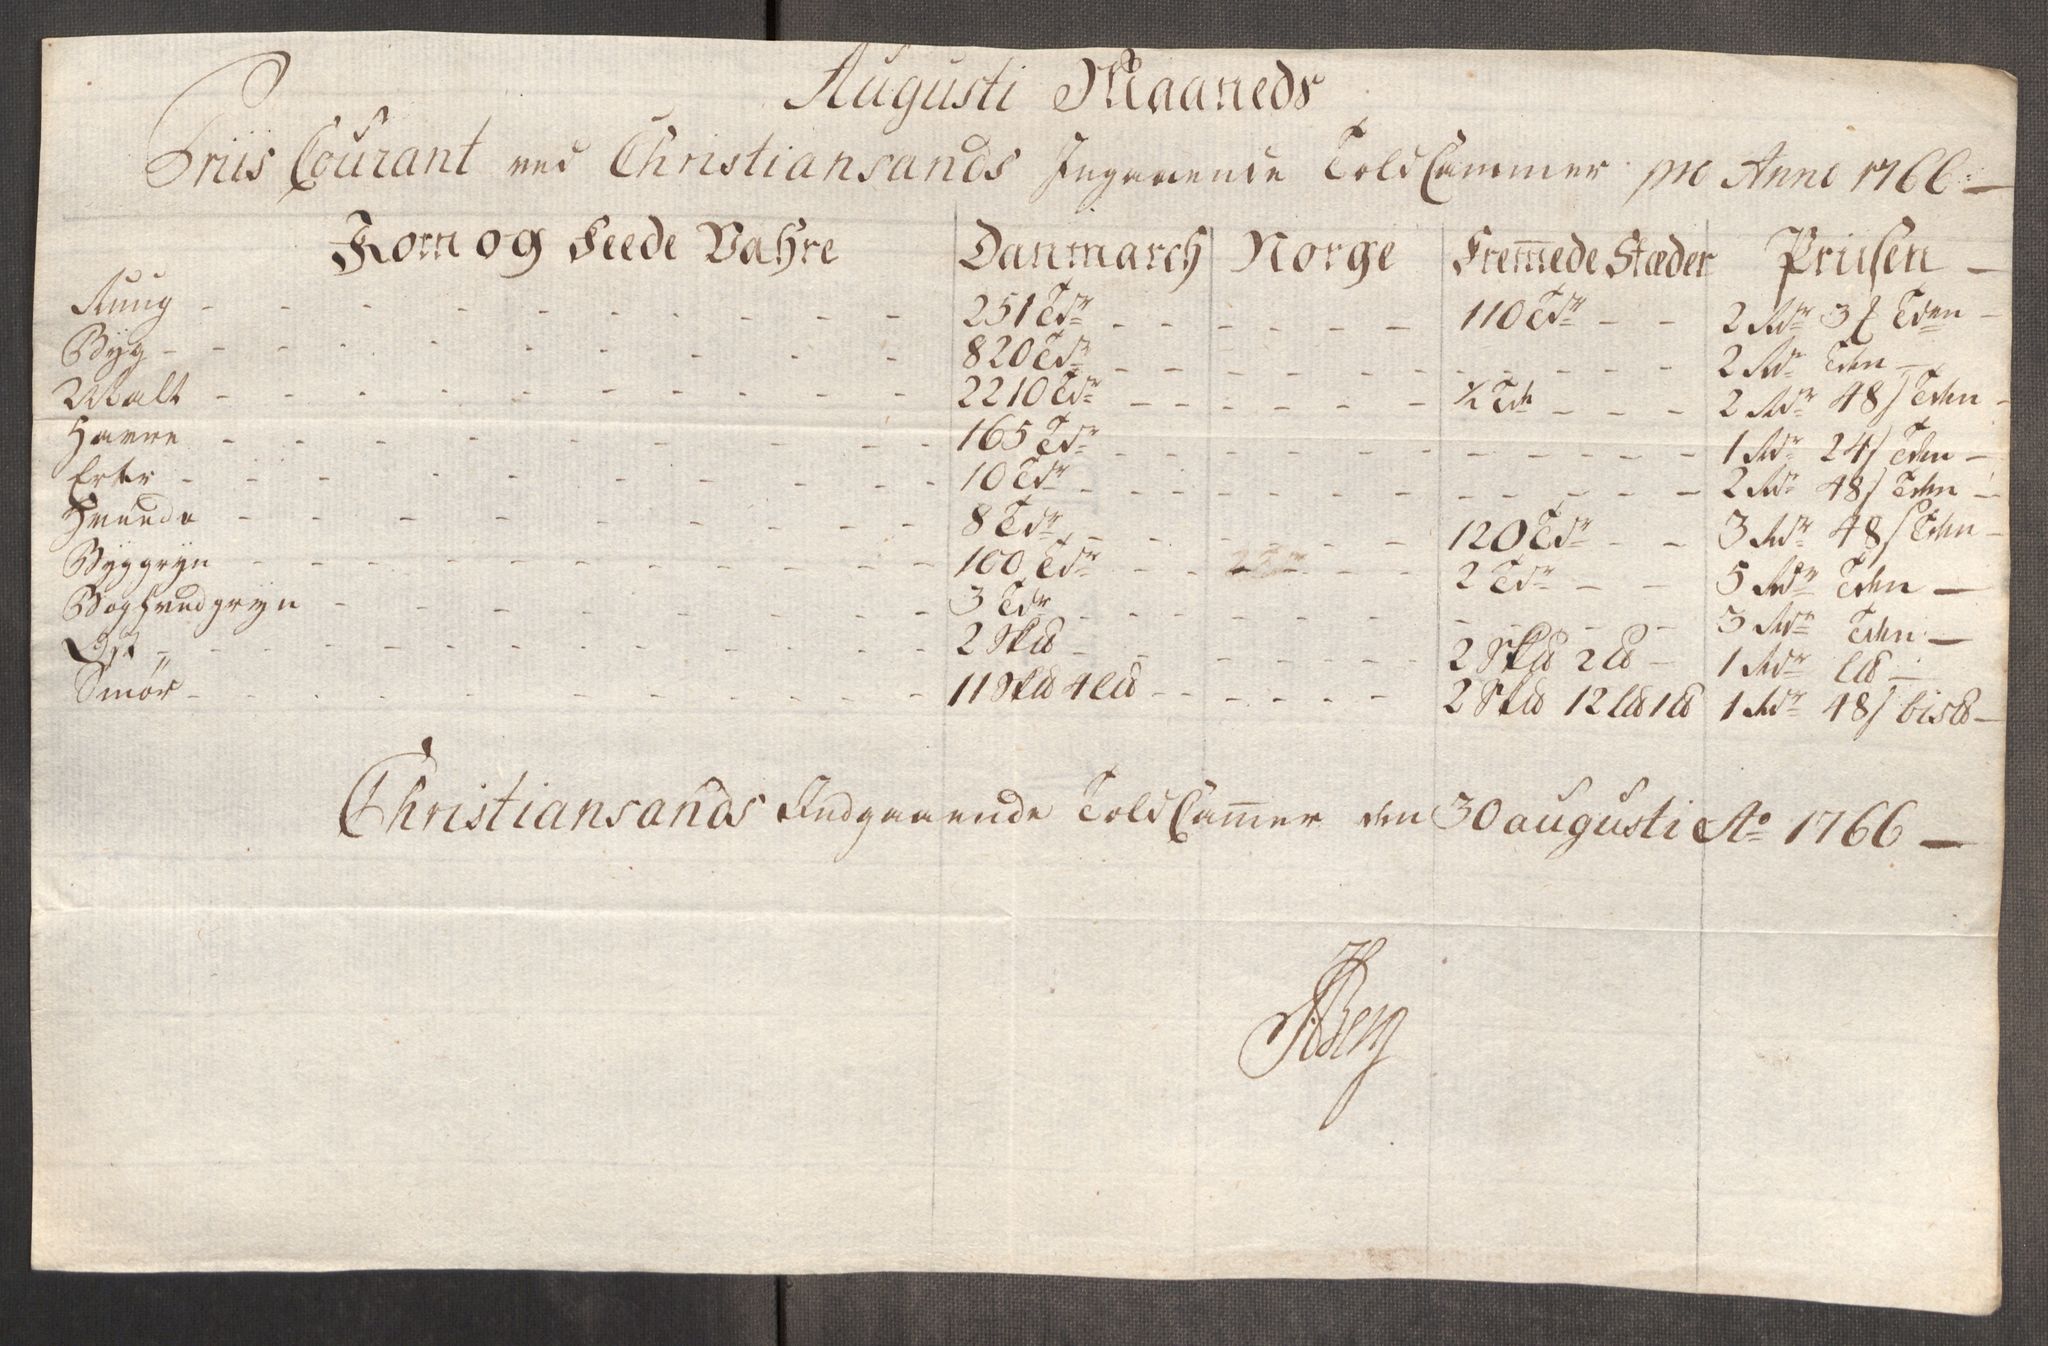 Augusti Maaneds
Priis Courant ved Christiansands Ingaaende Told Cammer pro Anno 1766
Korn og Feede Vahre Danmarch Norge Fremmede Stæder Priisen
Ruug 251 Tdr 110 Tdr 2 Rdr 3 Tden
Byg 820 Tdr 2 Rdr Tden
Malt 2210 Tdr ½ Tde 2 Rdr 48 s Tden
Havre 165 Tdr 1 Rdr 24 s Tden
Erter 10 Tdr 2 Rdr 48 s Tden
Hveede 8 Tdr 120 Tdr 3 Rdr 48 s Tden
Byggryn 100 Tdr 2 Tdr 5 Rdr Tden
Boghvedgryn 3 Tdr 3 Rdr Tden
Ost 2 Sk℔ 2 Sk℔ 2 L℔ 1 Rdr L℔
Smör 11 Sk℔ 4 L℔ 2 Sk℔ 12 L℔ 1 ℔ 1 Rdr 48 s bis℔
Christiansands Indgaaende Told Cammer den 30 augusti Ao 1766
Berg